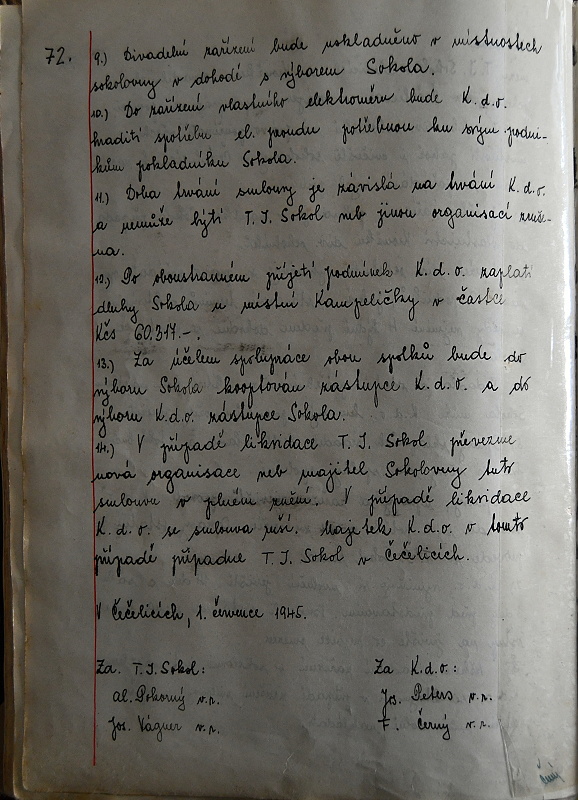 72.
9.) Divadelní zařízení bude uskladněno v místnostech
sokolovny v dohodě s výborem Sokola.
10.) Do zařízení vlastního elektroměru bude K.d.o.
hraditi spotřebu el. proudu potřebnou ku svým podni-
kům pokladníku Sokola.
11.) Doba trvání smlouvy je závislá na trvání K.d.o.
a nemůže býti T.J. Sokol neb jinou organisací zruše-
na.
12.) Po oboustranném přijetí podmínek K.d.o. zaplatí
dluhy Sokola u místní Kampeličky v částce
Kčs 60.317.-.
13.) Za účelem spolupráce obou spolků bude do
výboru Sokola kooptován zástupce K.d.o. a do
výboru K.d.o. zástupce Sokola.
14.) V případě likvidace T.J. Sokol převezme
nová organisace neb majitel Sokolovny tuto
smlouvu v plném znění. V případě likvidace
K.d.o. se smlouva ruší. Majetek K.d.o. v tomto
případě připadne T.J. Sokol v Čečelicích.
V Čečelicích, 1. července 1945.
Za T.J. Sokol: Za K.d.o.:
Al. Pokorný v.r. Jos. Peters v.r.
Jos. Vágner v.r. F. Černý v.r.